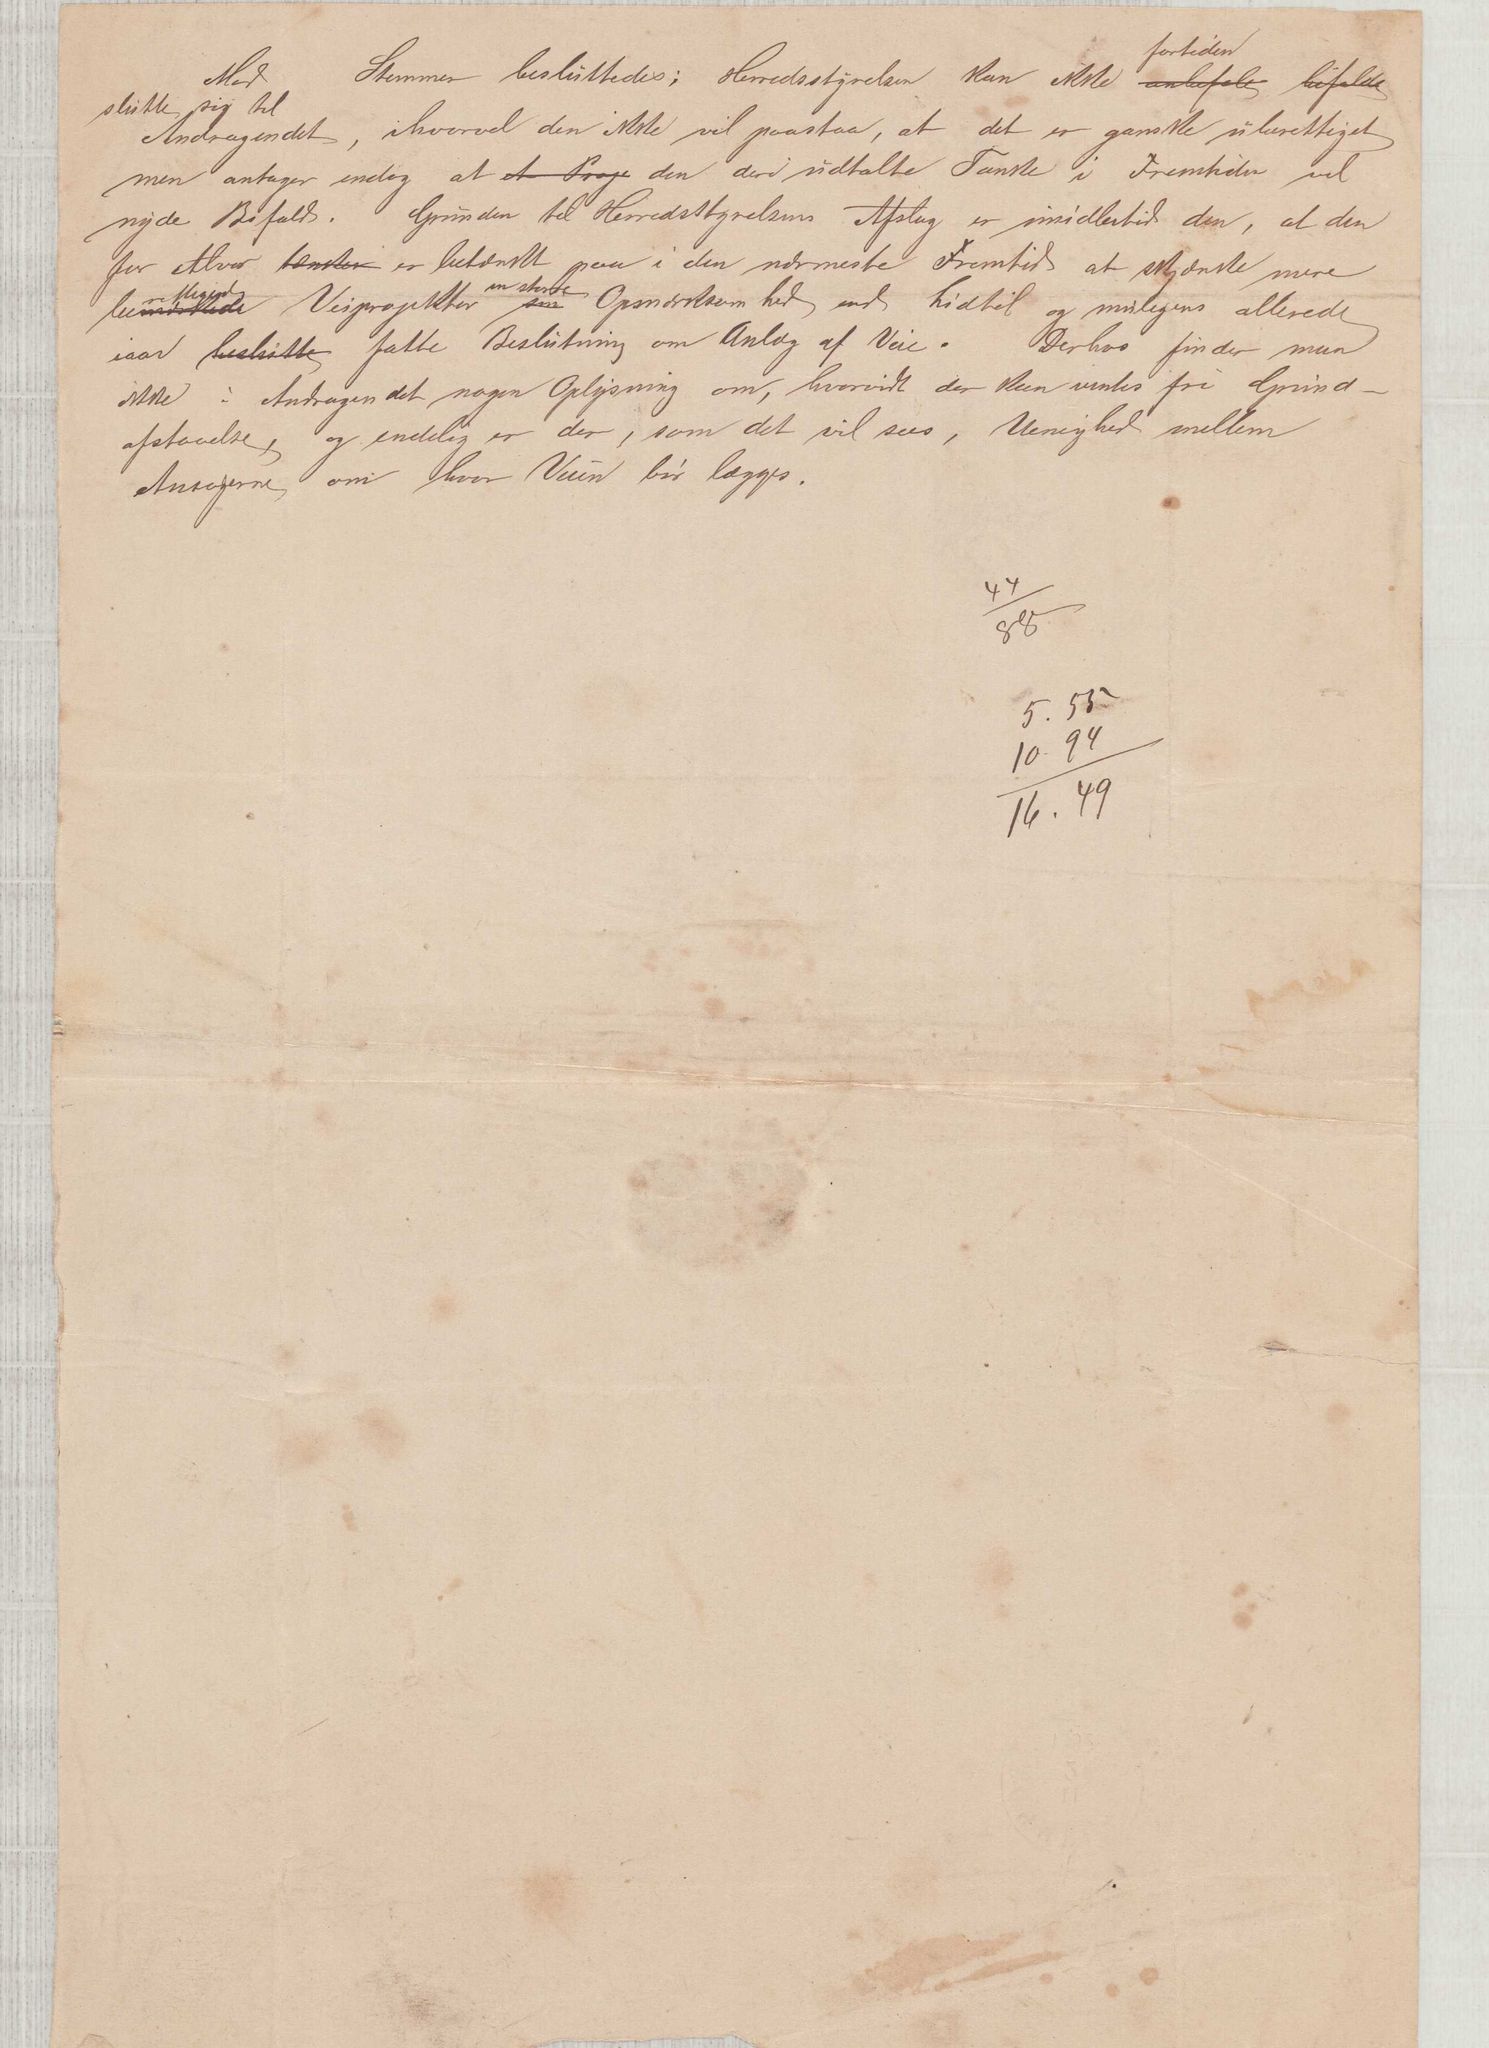 fortiden
Med Stemmer besluttedes: Herredsstyrelsen kan ikke anbefale bifalde
slutte sig til
Andragendet, ihvorvel den ikke vil paastaa, at det er ganske uberettiget
men antager endog at den deri udtalte Tanke i Fremtiden vil
nyde Bifald. Grunden til Herredsstyrelsens Afslag er imidlertid den, at den
for Alvor tænker er betænkt paa i den nærmeste Fremtid at skjænke mere
en større
Veiprojekter Opmærksomhed end hidtil og muligens allerede
iaar beslutte fatte Beslutning om Anlæg af Veie. Derhos finder man
ikke i Andragendet nogen Oplysning om, hvorvidt der kan ventes fri Grund-
afstaaelse, og endelig er der, som det vil sees, Uenighed mellem
Ansøgerne om hvor Veien bør lægges.
44
88
5. 55
10. 94
16. 49